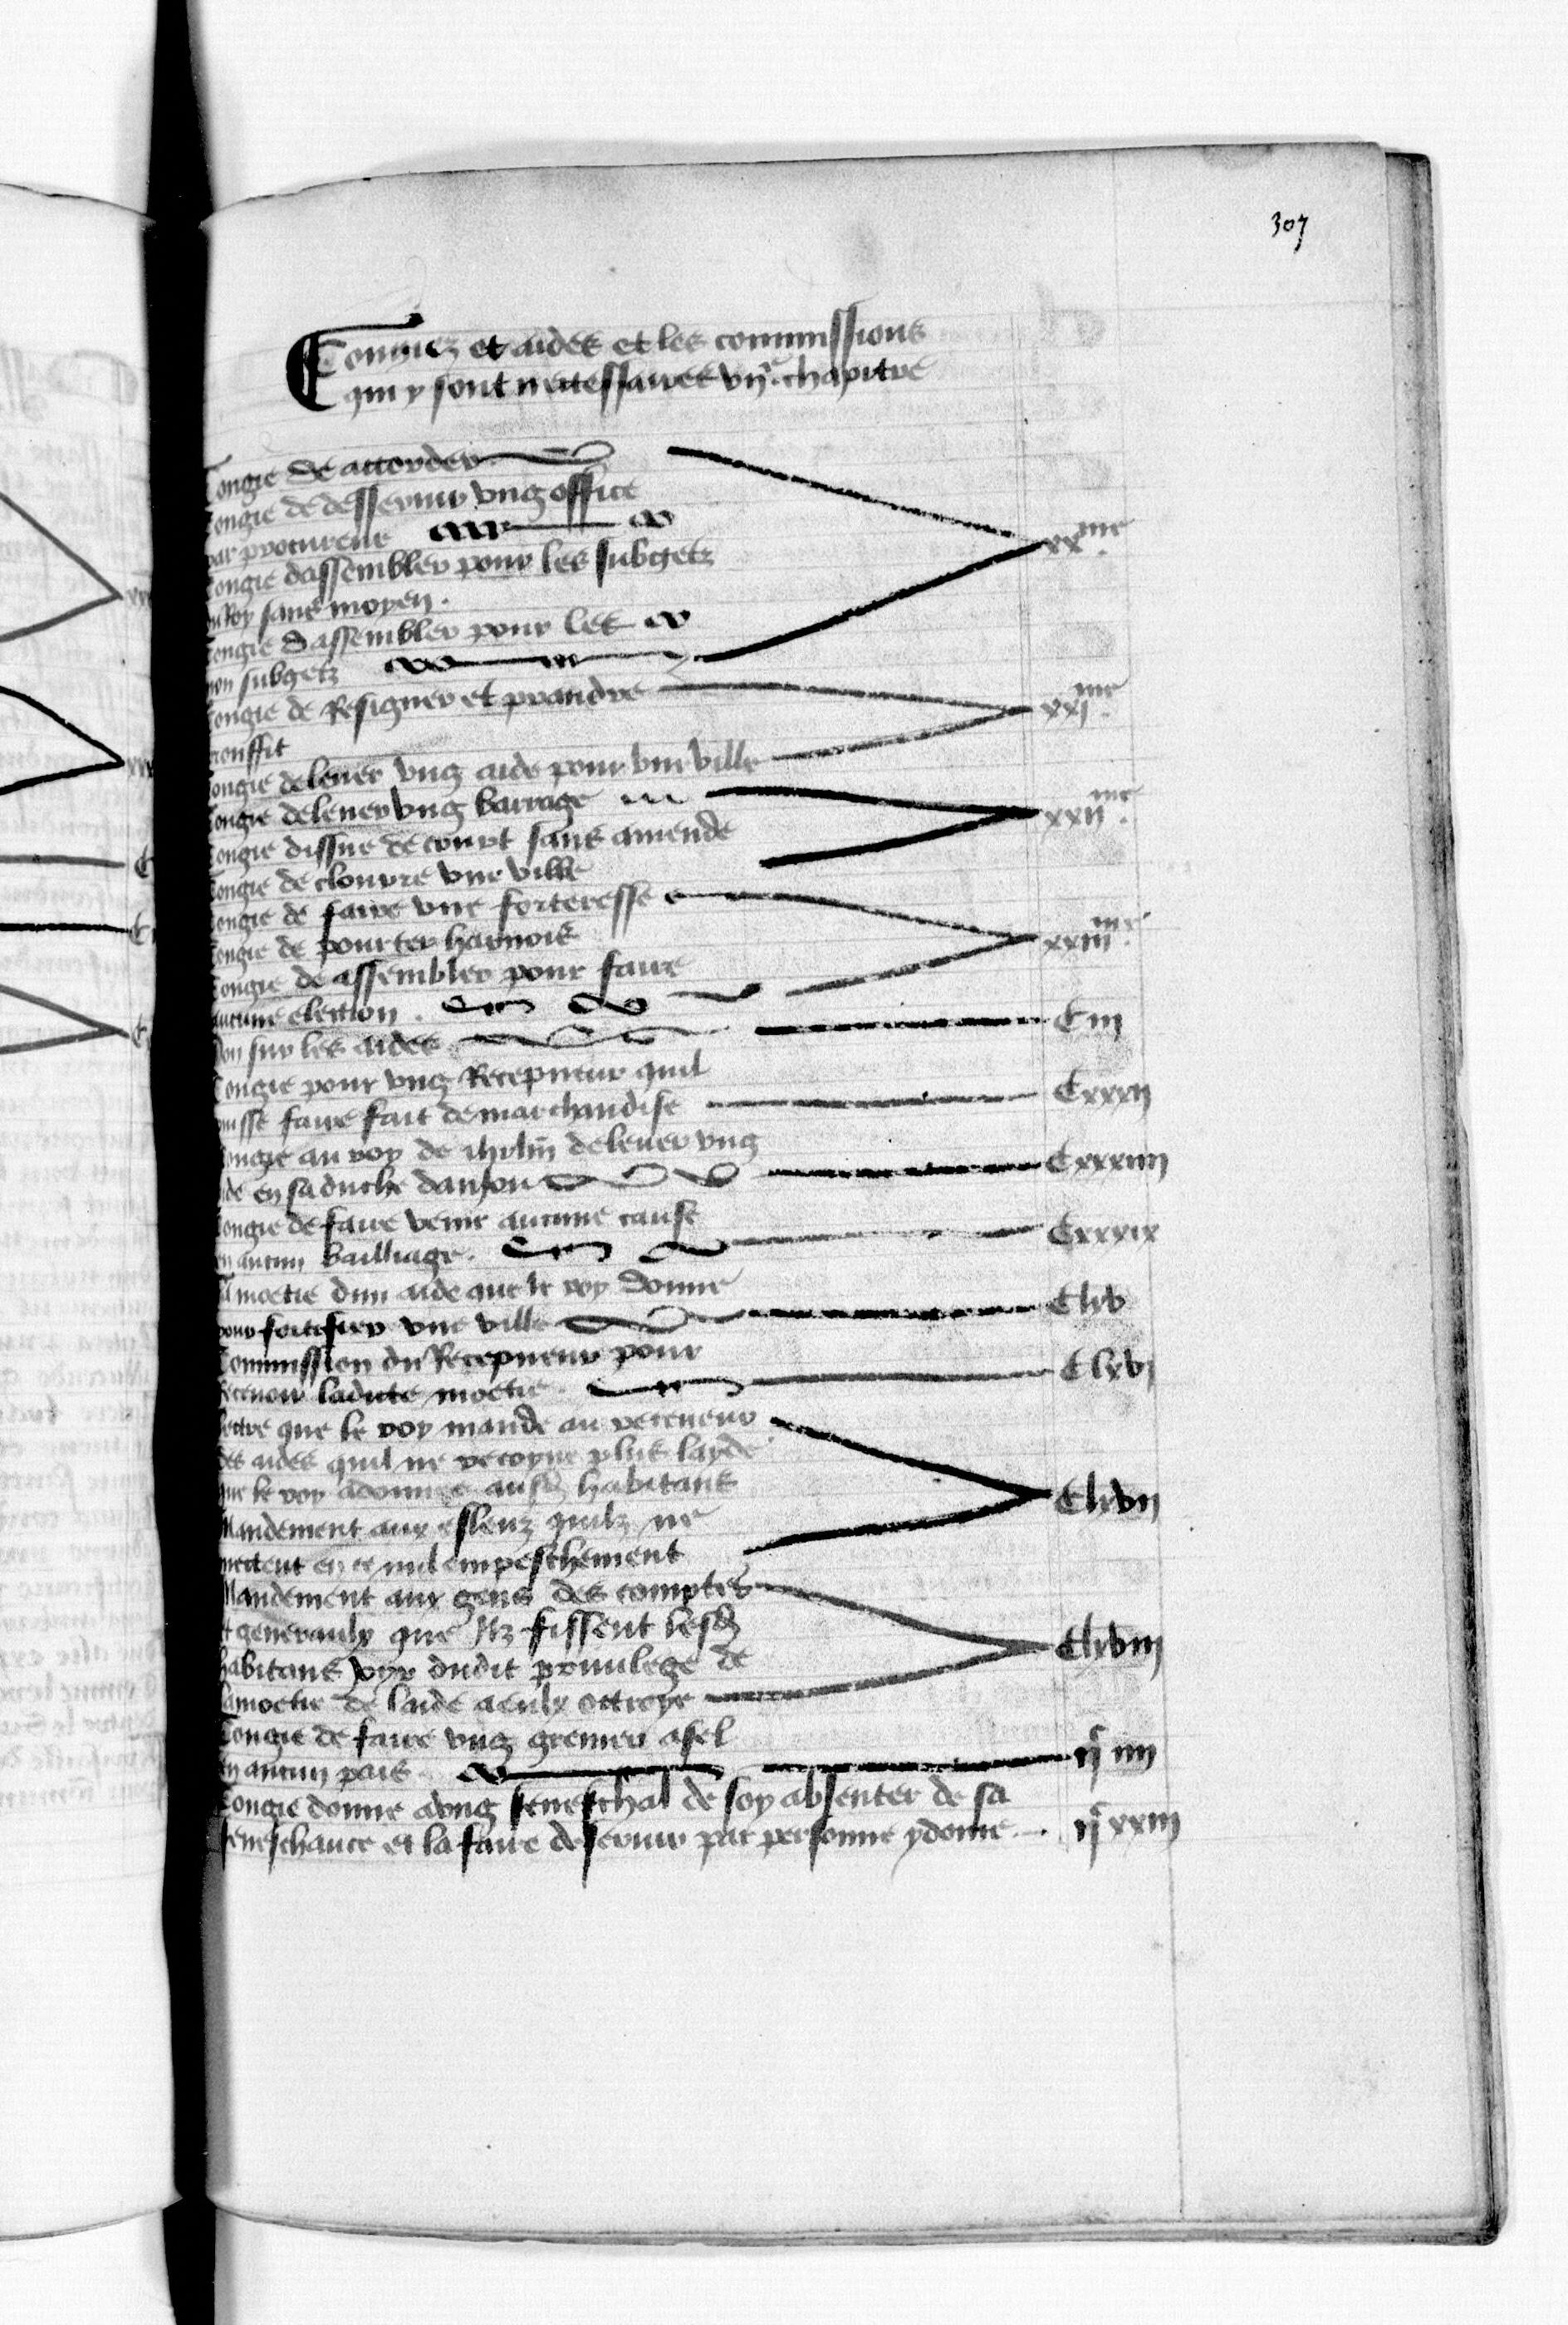 307
Congiez et aides et les commissions
qui y sont necessaires vije chapitre
Congie de accorder
Congie de desservir ung office
par procureur
Congie dassembler pour les subgetz
du Roy sans moyen. xxme.
Congie dassembler pour les
non subgetz
Congie de Resigner et prandre xxjme.
prouffit
Congie de lever ung aide pour une ville
Congie de lever ung barrage xxijme.
Congie dissue de court sans amende
Congie de clourre une ville
Congie de faire une forteresse
Congie de pourter harnois xxiijme.
Congie de assembler pour faire
aucune election.
Don sur les aides Ciij
Congie pour ung Recepveur quil
puisse faire fait de marchandise Cxxxij
Congie au roy de ihrlm de lever ung
aide en sa duche danjou Cxxxiiij
Congie de faire venir aucune cause
en aucun bailliage. Cxxxix
La moetie dun aide que le roy donne
pour fortifier une ville Clxv
Commission du Recepveur pour
Recevoir ladicte moetie. Clxvj
Lettre que le roy mande au receveur
des aides quil ne recoyve plus layde
que le roy a donnee ausd habitans Clxvij
Mandement aux esleuz quilz ne
mectent en ce nul empeschement
Mandement aux gens des comptes
et generaulx que Ilz fissent lesd
habitans joyr dudit privilege de Clxviij
la moetie de laide a eulx ottroye
Congie de faire ung grenier a sel
en aucun pais. ijc iiij
Congie donne a ung seneschal de soy absenter de sa
seneschaucie et la faire deservir par personne ydoine. ijc xxiij